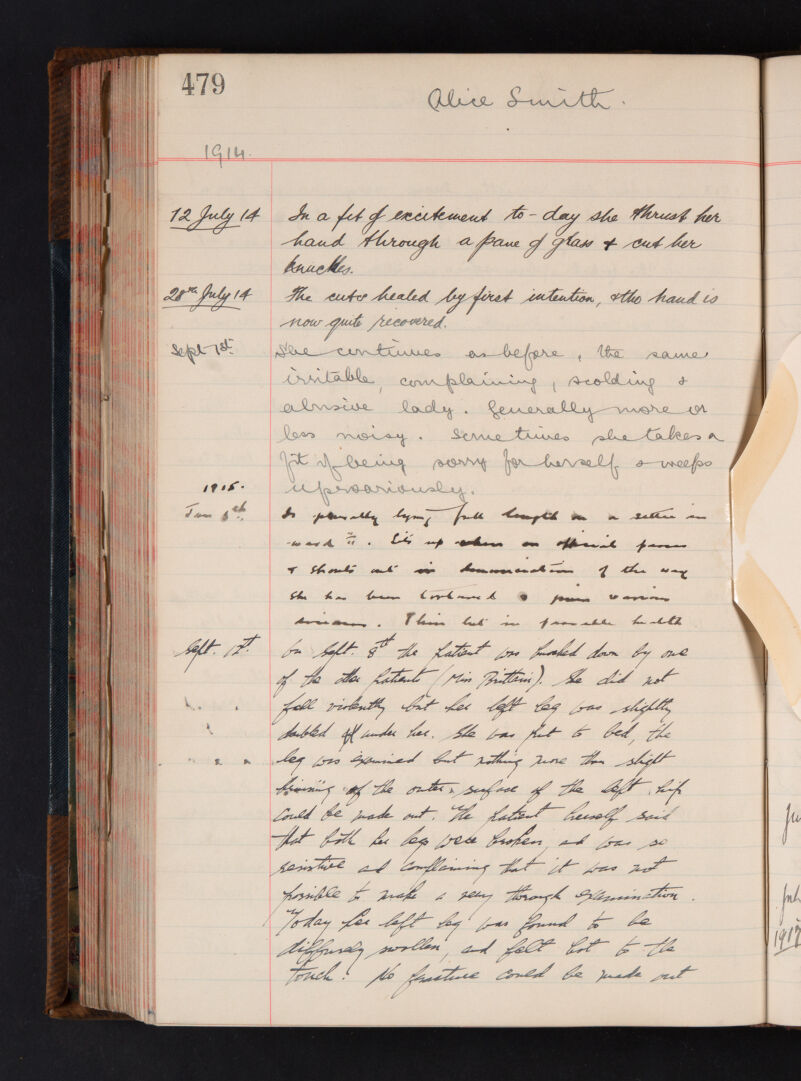 479
Alice Smith.
1914.
12 July 14 In a fit of excitement to-day she thrust her
hand through a pane of glass & cut her
knuckles.
28th July 14 The cuts healed by first intention, & the hand is
now quite recovered.
Sept 1st. She continues as before, the same
irritable, complaining, scolding &
abusive lady. Generally more or
less noisy. Sometimes she takes a
fit of being sorry for herself & weeps
uproariously.
1915.
Jan 6th. Is generally lying full length on a settee in
ward . Sits up when an official passes
& shouts out in denunciation of the way
she has been tortured & given various
diseases. Thin but in fair health
Sept. 12t. On Sept. 8th the patient was knocked down by one
of the other patients (Miss ). She did not
fall violently but her left leg was slightly
doubled up under her. She was put to bed, the
leg was examined but nothing more than slight
bruising of the outer surface of the left hip
could be made out. The patient herself said
that both her legs were broken, and was so
resistive and complaining that it was not
possible to make a very through examination.
Today her left leg was found to be
diffusely swollen, and felt hot to the
touch. No fracture could be made out
1917